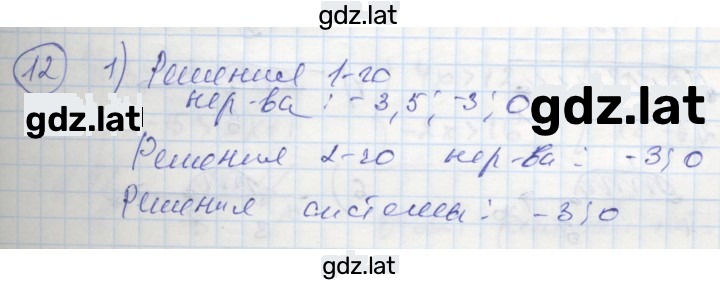 gdz.lat
12 1) Решения 1-го
нер-ва: -3,5; -3; 0
gdz.lat
gdz.lat
Решения 2-го нер-ва: -3; 0
Решения системы: -3; 0
gdz.lat